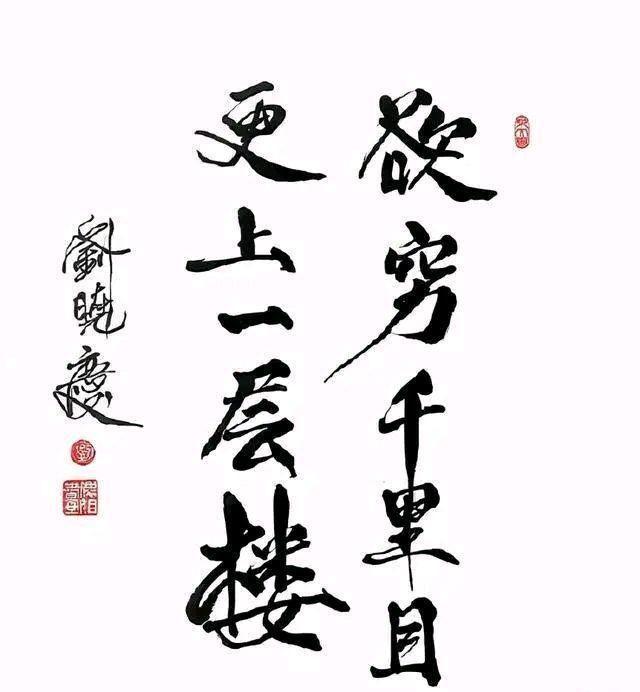 欲穷千里目
更上一层楼
劉曉慶
劉